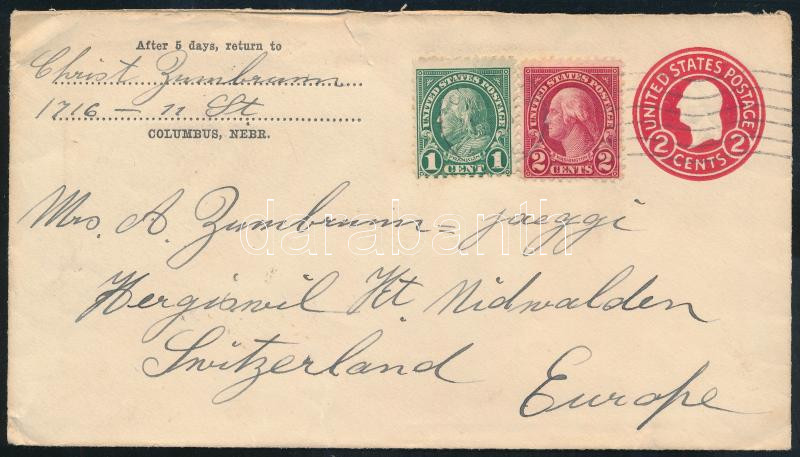 After 5 days, return to
Christ Zumbrunn
1716 - 11 St
COLUMBUS, NEBR.
UNITED STATES POSTAGE
FRANKLIN
1 CENT 1
UNITED STATES POSTAGE
WASHINGTON
2 CENTS 2
UNITED STATES POSTAGE
2 CENTS 2
Mrs. A. Zumbrunn = Jaeggi
Hergiswil Kt. Nidwalden
Switzerland
Europe
darabanth